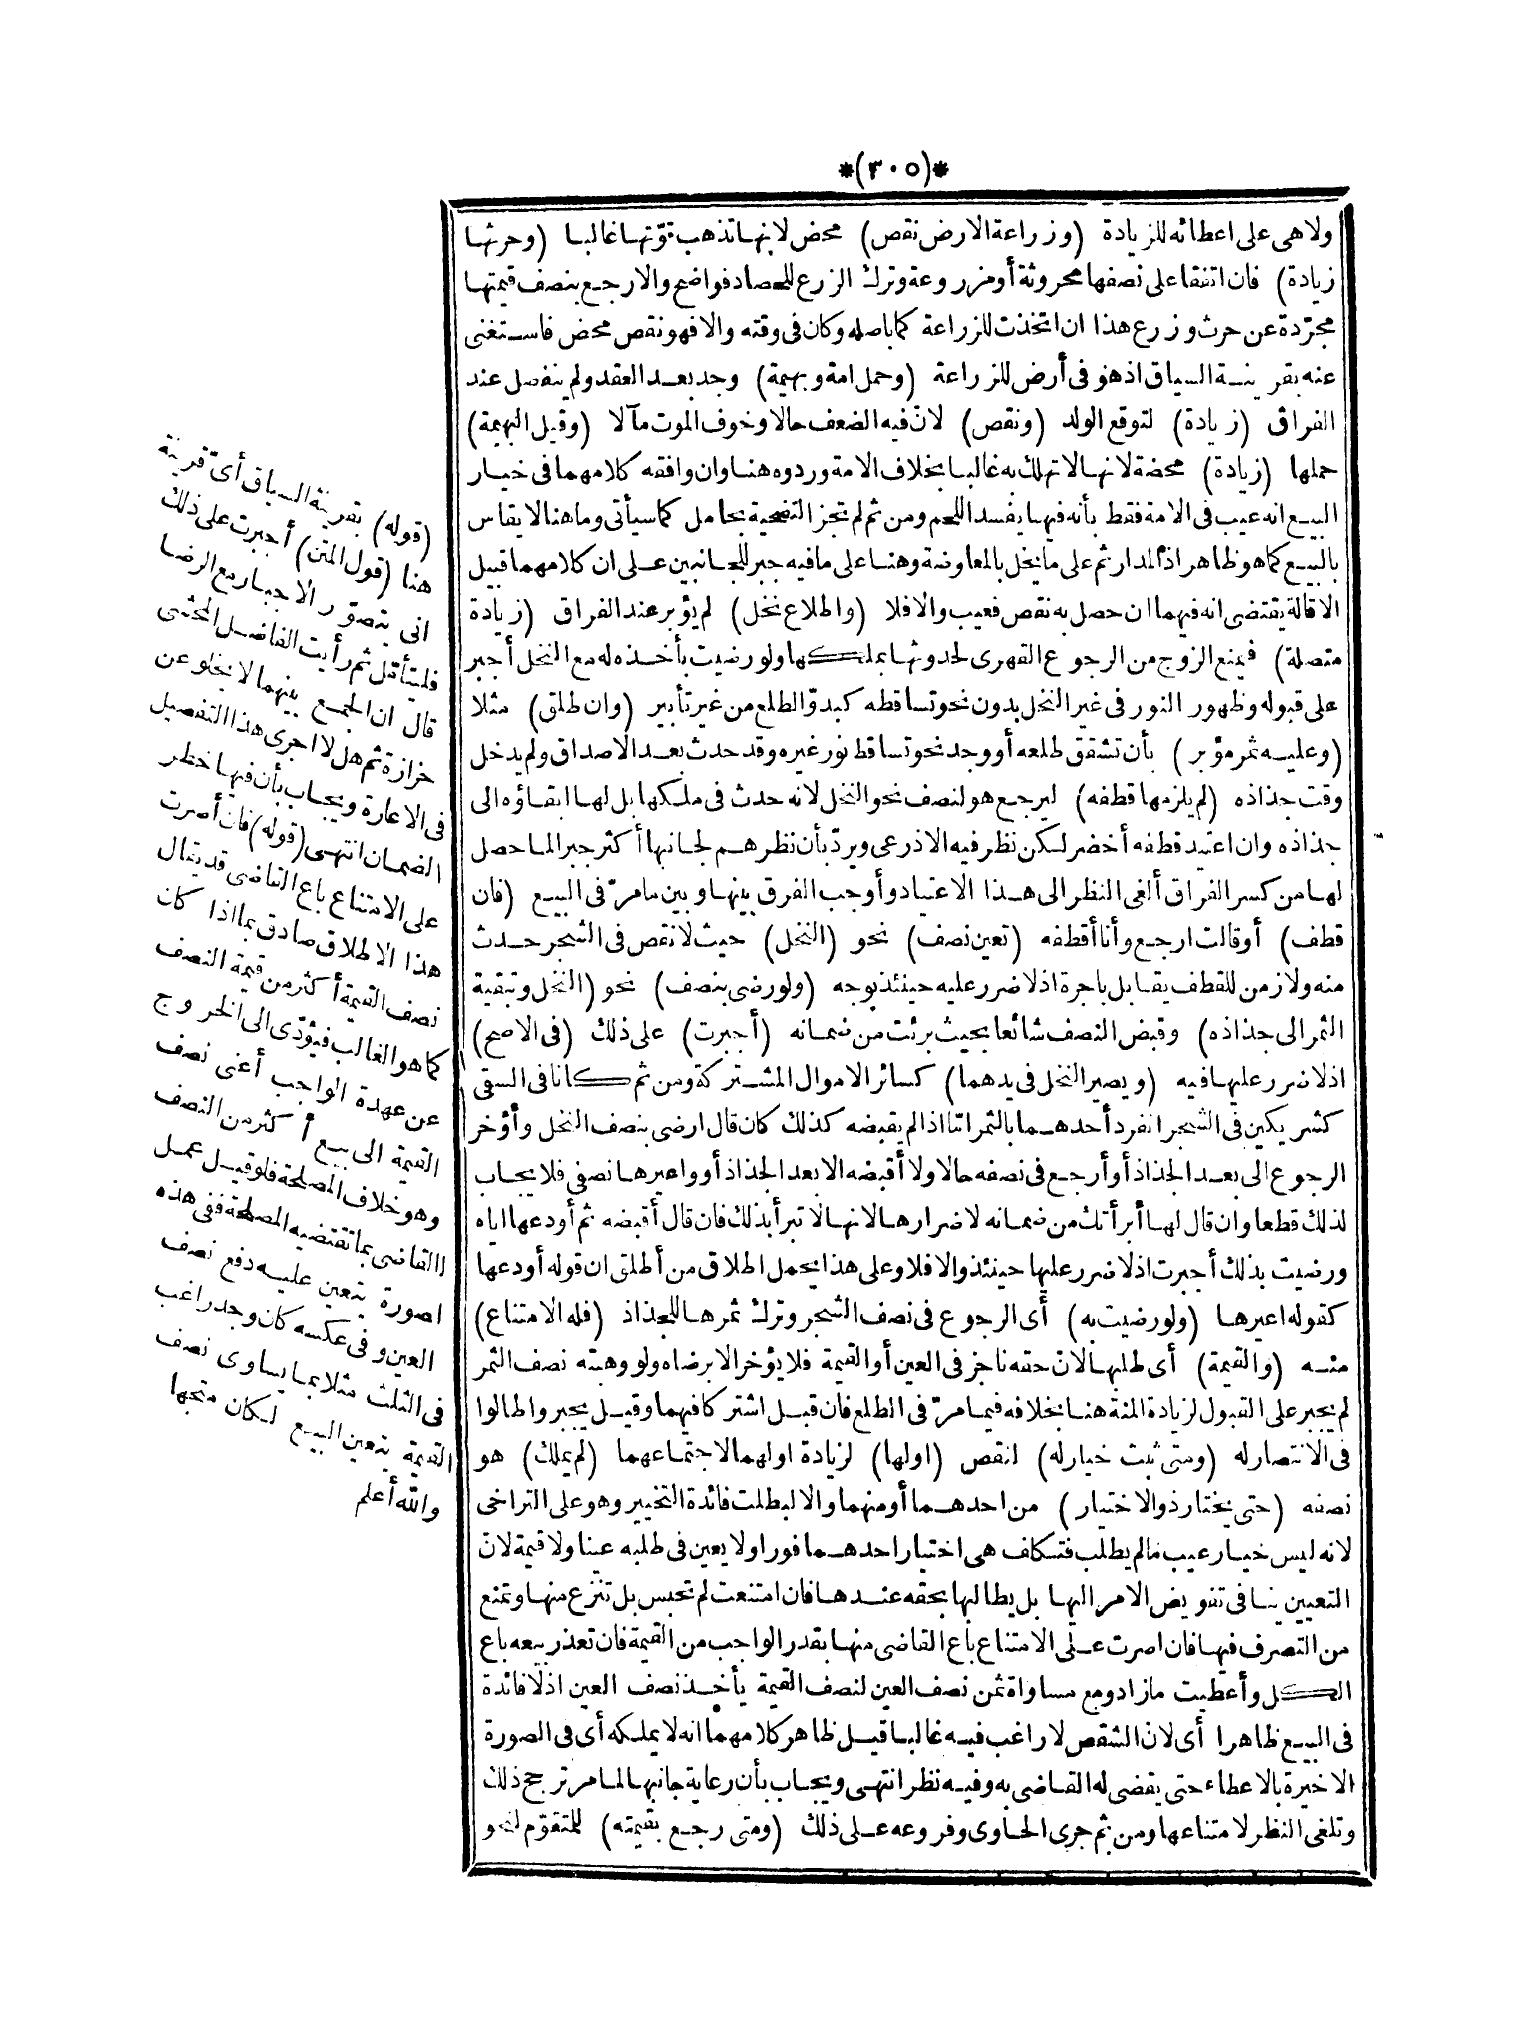 *(٣٠٥)*
ولا هى على اعطائه للزيادة (وزراعة الارض نقص) محض لانها تذهب قوّتها غالبا (وحرثها
زيادة) فان اتفقا على نصفها محروثة أو مزروعة وترك الزرع للحصاد فواضح والارجع بنصف قيمتها
مجرّدة عن حرث وزرع هذا ان اتخذت للزراعة كما باصله وكان فى وقته والا فهو نقص محض فاستغنى
عنه بقرينة السياق اذ هو فى أرض للزراعة (وحمل امة وبهيمة) وجد بعد العقد ولم ينفصل عند
الفراق (زيادة) لتوقع الولد (ونقص) لانّ فيه الضعف حالا وخوف الموت مآلا (وقيل البهيمة)
حملها (زيادة) محضة لانها لا تهلك به غالبا بخلاف الامة وردوه هنا وان وافقه كلامهما فى خيار
البيع انه عيب فى الامة فقط بأنه فيها يفسد اللحم ومن ثم لم تجز التضحية بحامل كما سيأتى وما هنا لا يقاس
بالبيع كما هو ظاهر اذ المدار ثم على ما يخل بالمعاوضة وهنا على ما فيه جبر للجانبين على ان كلامهما قبيل
الاقالة يقتضى انه فيهما ان حصل به نقص فعيب والا فلا (واطلاع نخل) لم يؤبر عند الفراق (زيادة
متصلة) فيمنع الزوج من الرجوع القهرى لحدوثها بملكها ولو رضيت بأخذه له مع النخل أجبر
على قبوله وظهور النور فى غير النخل بدون نحو تساقطه كبدوّ الطلع من غير تأبير (وان طلق) مثلا
(وعليه ثمر مؤبر) بأن تشقق طلعه أو وجد نحو تساقط نور غيره وقد حدث بعد الاصداق ولم يدخل
وقت جذاذه (لم يلزمها قطفه) ليرجع هو لنصف نحو النخل لانه حدث فى ملكها بل لها ابقاؤه الى
جذاذه وان اعتيد قطفه أخضر لكن نظر فيه الاذرعى ويردّ بأن نظرهم لجانبها أكثر جبرا لما حصل
لها من كسر الفراق ألغى النظر الى هذا الاعتياد وأوجب الفرق بينها وبين ما مرّ فى البيع (فان
قطف) أو قالت ارجع وأنا أقطفه (تعين نصف) نحو (النخل) حيث لا نقص فى الشجر حدث
منه ولا زمن للقطف يقابل باجرة اذ لا ضرر عليه حينئذ بوجه (ولو رضى بنصف) نحو (النخل وتبقية
الثمر الى جذاذه) وقبض النصف شائعا بحيث برئت من ضمانه (أجبرت) على ذلك (فى الاصح)
اذ لا ضرر عليها فيه (ويصير النخل فى يدهما) كسائر الاموال المشتركة ومن ثم كانا فى السقى
كشريكين فى الشجر انفرد أحدهما بالثمر امّا اذا لم يقبضه كذلك كان قال ارضى بنصف النخل وأؤخر
الرجوع الى بعد الجذاذ أو أرجع فى نصفه حالا ولا أقبضه الا بعد الجذاذ أو واعيرها نصفى فلا يجاب
لذلك قطعا وان قال لها أبرأتك من ضمانه لاضرارها لانها لا تبرأ بذلك فان قال أقبضه ثم أودعها اياه
ورضيت بذلك أجبرت اذ لا ضرر عليها حينئذ والا فلا وعلى هذا يحمل اطلاق من أطلق ان قوله أودعها
كقوله اعيرها (ولو رضيت به) أى الرجوع فى نصف الشجر وترك ثمرها للجذاذ (فله الامتناع)
منه (والقيمة) أى طلبها لانّ حقه ناجز فى العين أو القيمة فلا يؤخر الا برضاه ولو وهبته نصف الثمر
لم يجبر على القبول لزيادة المنة هنا بخلافه فيما مرّ فى الطلع فان قبل اشتركا فيهما وقيل يجبر واطالوا
فى الانتصار له (ومتى ثبت خيار له) لنقص (اولها) لزيادة اولهما لاجتماعهما (لم يملك) هو
نصفه (حتى يختار ذو الاختيار) من احدهما أو منهما والا لبطلت فائدة التخيير وهو على التراخى
لانه ليس خيار عيب ما لم يطلب فتكلف هى اختيار احدهما فورا ولا يعين فى طلبه عينا ولا قيمة لانّ
التعيين ينافى تفويض الامر اليها بل يطالبها بحقه عندها فان امتنعت لم تحبس بل تنزع منها وتمنع
من التصرف فيها فان اصرت على الامتناع باع القاضى منها بقدر الواجب من القيمة فان تعذر بيعه باع
الكل وأعطيت ما زاد ومع مساواة ثمن نصف العين لنصف القيمة يأخذ نصف العين اذ لا فائدة
فى البيع ظاهرا أى لانّ الشقص لا راغب فيه غالبا قيل ظاهر كلامهما انه لا يملكه أى فى الصورة
الاخيرة بالاعطاء حتى يقضى له القاضى به وفيه نظر انتهى ويجاب بأن رعاية جانبها لما مر ترجح ذلك
وتلغى النظر لامتناعها ومن ثم جرى الحاوى وفروعه على ذلك (ومتى رجع بقيمته) للمتقوّم لنحو
(قوله) بقرينة السياق أى قرينة
هنا (قول المتن) أجبرت على ذلك
انى يتصوّر الاجبار مع الرضا
فليتأمّل ثم رأيت الفاضل المحشى
قال ان الجمع بينهما لا يخلو عن
حزازة ثم هل لا اجرى هذا التفصيل
فى الاعارة ويجاب بأن فيها خطر
الضمان انتهى (قوله) فان أصرت
على الامتناع باع القاضى قد يقال
هذا الاطلاق صادق بما اذا كان
نصف القيمة أكثر من قيمة النصف
كما هو الغالب فيؤدّى الى الخروج
عن عهدة الواجب أعنى نصف
القيمة الى بيع أكثر من النصف
وهو خلاف المصلحة فلو قيل عمل
القاضى بما تقتضيه المصلحة ففى هذه
الصورة يتعين عليه دفع نصف
العين وفى عكسه كان وجد راغب
فى الثلث مثلا بما يساوى نصف
القيمة يتعين البيع لكان متجها
والله أعلم